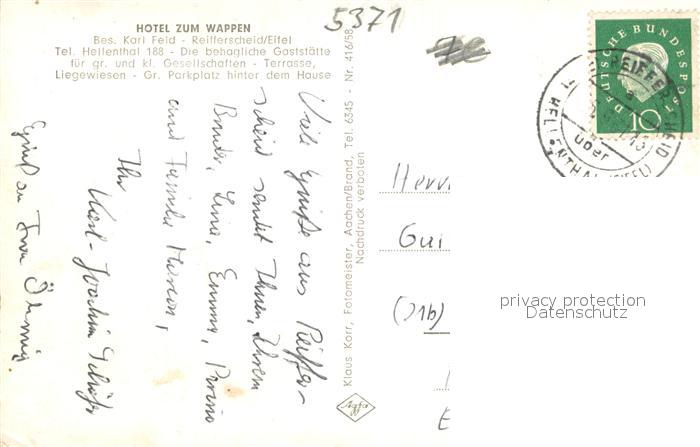 HOTEL ZUM WAPPEN
Bes. Karl Feld - Reifferscheid/Eifel
Tel. Hellenthal 188 - Die behagliche Gaststätte
für gr. und kl. Gesellschaften - Terrasse,
Liegewiesen - Gr. Parkplatz hinter dem Hause
5371
Viele Grüße aus Reiffer-
scheid sendet Ihnen, Ihrem
Bruder, Lina, Emma,
und Familie
Ihr
Karl-Joachim Schäfer
Gruß an Frau
Klaus Korr, Fotomeister, Aachen/Brand, Tel. 6345 - Nr. 416/58
Nachdruck verboten
Agfa
DEUTSCHE BUNDESPOST
10
REIFFERSCHEID
über
HELLENTHAL (EIFEL)
Herrn
Gui
privacy protection
Datenschutz